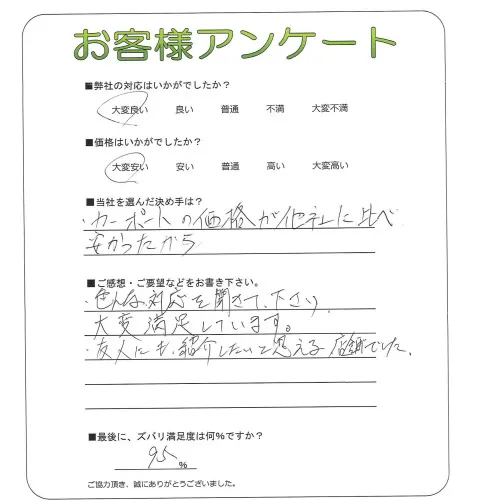 お客様アンケート
■弊社の対応はいかがでしたか？
大変良い 良い 普通 不満 大変不満
■価格はいかがでしたか？
大変安い 安い 普通 高い 大変高い
■当社を選んだ決め手は？
・カーポートの価格が他社に比べ
安かったから
■ご感想・ご要望などをお書き下さい。
・色んな対応を聞きて下さり、
大変満足しています。
・友人にも紹介したいと思える店舗でした。
■最後に、ズバリ満足度は何%ですか？
95 %
ご協力頂き、誠にありがとうございました。